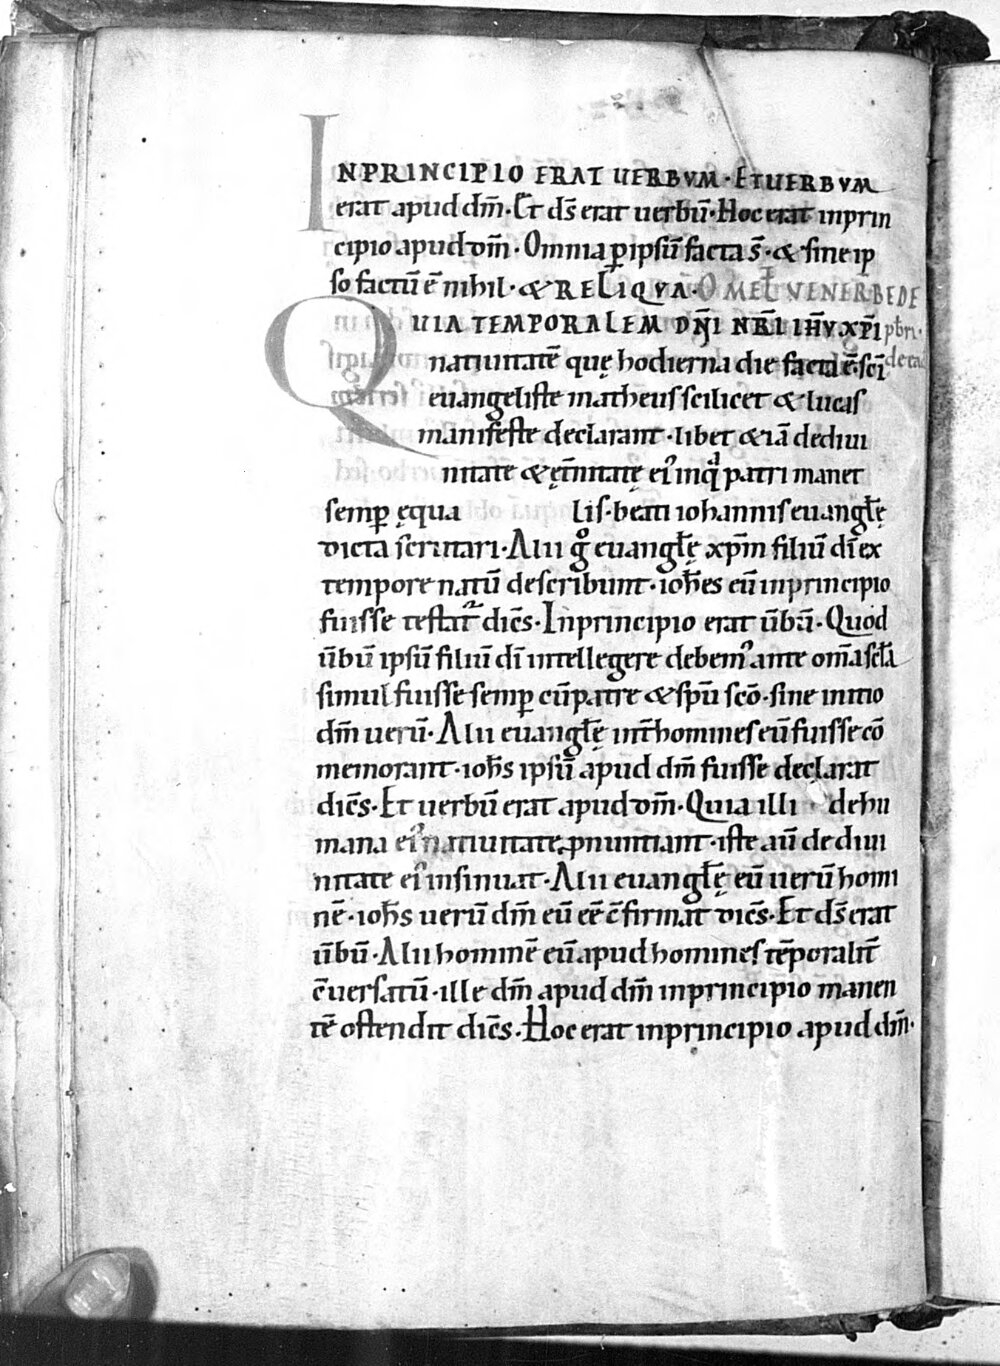 INPRINCIPIO ERAT UERBVM · ET UERBVM
erat apud dm̄ · Et ds̄ erat uerbū · Hoc erat inprin
cipio apud dm̄ · Omnia ꝑ ipsū facta s̄ · & sine ip
so factū ē nihil · & RELIQVA · OMEŁ VENERB̄ BEDE
QUIA TEMPORALEM DN̄I NR̄I IHV̄ XP̄I pb̄ri ·
natiuitatē quę hodierna die facta ē · sc̄i de ea
euangeliste matheus scilicet & lucas
manifeste declarant · libet & iā de diui
nitate & ęt̄nitatę ei᾽ inq̇ patri manet
semꝑ ęqua lis · beati iohannis euangłę
dicta scrutari · Alii g̊ euangłę xp̄m filiū dī ex
tempore natū describunt · ioh̄es eū inprincipio
fuisse testat᷑ dic̄s · Inprincipio erat ūbū · Quod
ūbū ipsū filiū dī intellegere debem᾽ ante om̄a scła
simul fuisse semꝑ cū patre & sp̄u sc̄o · sine initio
dm̄ uerū · Alii euangłę int̄ homines eū fuisse cō
memorant · ioh̄s ipsū apud dm̄ fuisse declarat
dic̄s · Et uerbū erat apud dm̄ · Quia illi de hu
mana ei᾽ natiuitate ꝓnuntiant · iste aū de diui
nitate ei᾽ insinuat · Alii euangłę eū uerū homi
nē · ioh̄s uerū dm̄ eū eē c̄firmat dic̄s · Et ds̄ erat
ūbū · Alii hominē eū apud homines tēporalit̄
c̄uersatū · ille dm̄ apud dm̄ inprincipio manen
tē ostendit dic̄s · Hoc erat inprincipio apud dm̄ ·